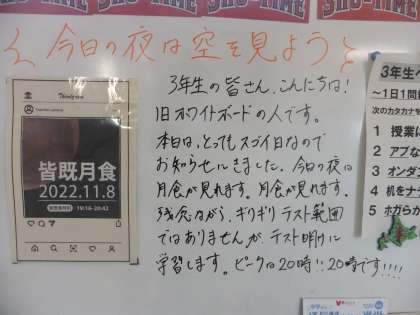 SHO-TIME
SHO-TIME
SHO-TIME
今日の夜は空を見よう
皆既月食
2022.11.8
19:16-20:42
3年生の皆さん、こんにちは!
旧ホワイトボードの人です。
本日は、とってもスゴイ日なので
お知らせにきました。今日の夜は
月食が見れます。月食が見れます。
残念ながら、ギリギリテスト範囲
ではありませんが、テスト明けに
学習します。ピークは20時!!20時です!!!!
3年生へ
～1日1問
次のカタカナを
1 授業に
2 アブな
3 オンダン
4 机をナ
5 ホガらか